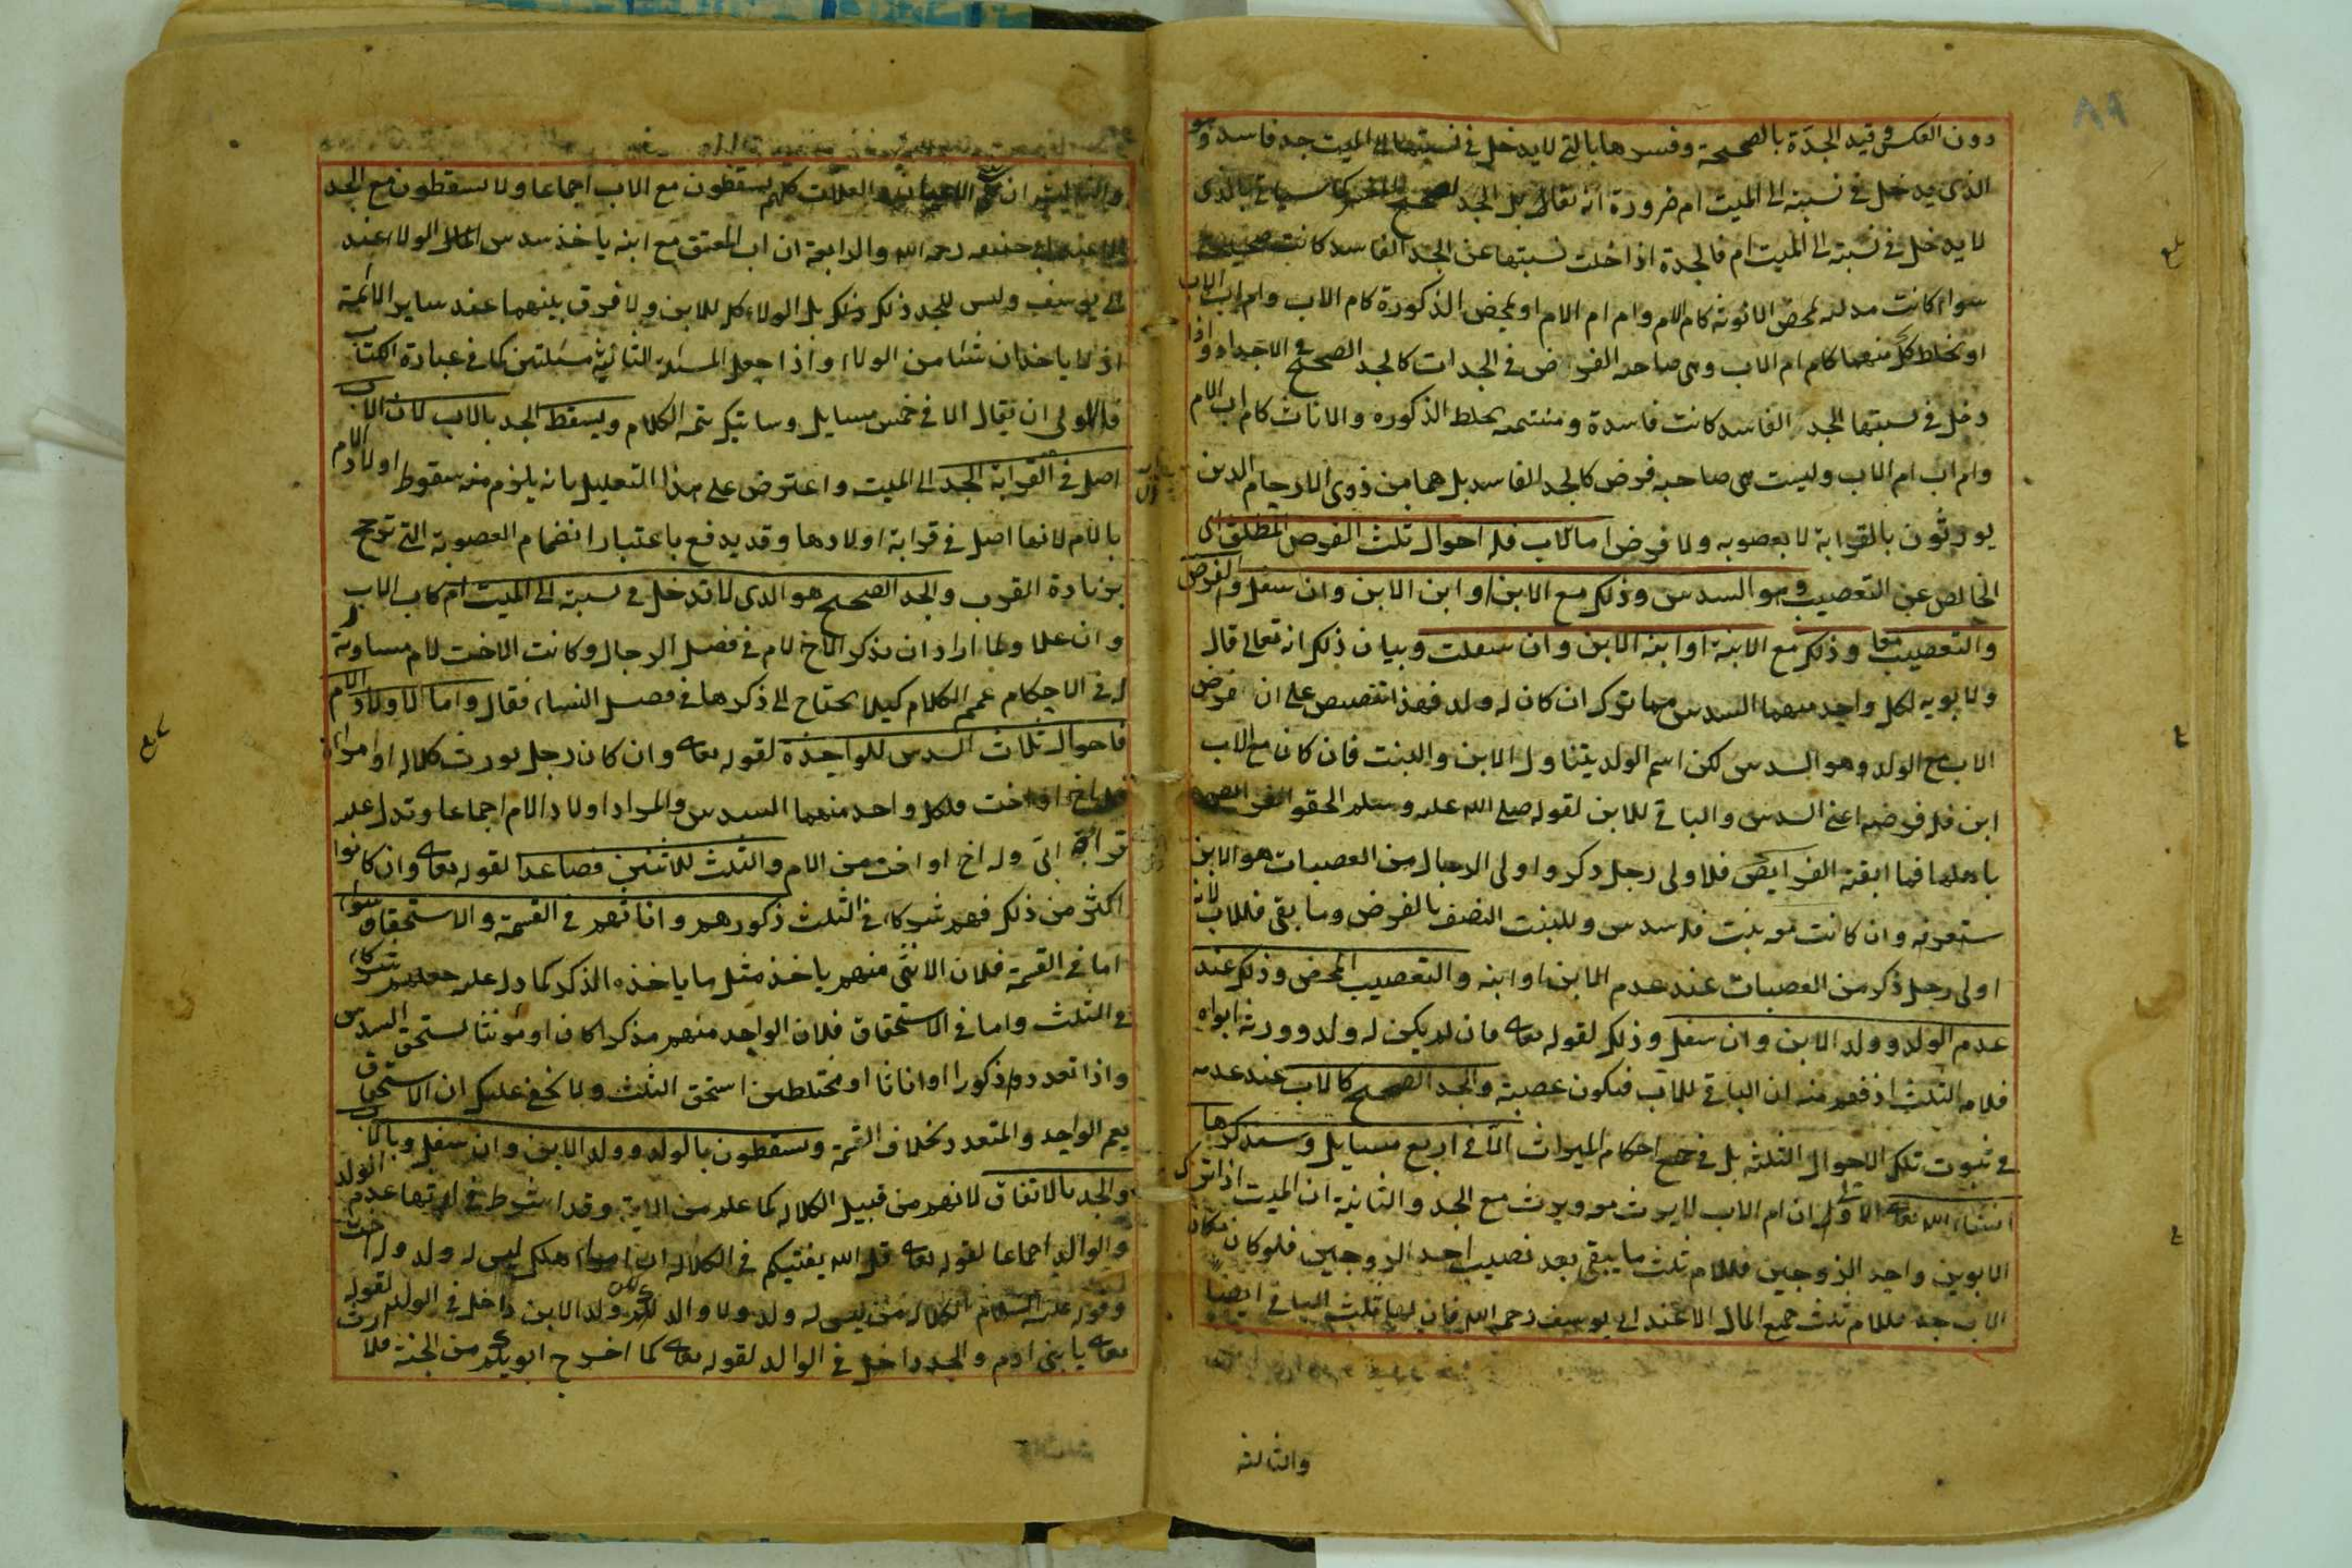 ٨٩
دون العكس وقيد الجدّة بالصحيحة وفسرها بالتي لا يدخل في نسبتها الى الميت جد فاسد وهو
الذي يدخل في نسبته الى الميت ام ضرورة انه تقابل الجد الصحيح كما سياتي بالذي
لا يدخل في نسبته الى الميت ام فالجدة اذا خلت نسبتها عن الجد الفاسد كانت صحيحة
سواء كانت مدلية بمحض الانوثة كام الام وام ام الام او بمحض الذكورة كام الاب وام اب الاب
او بخلط كل منهما كام ام الاب وهي صاحبة الفرض في الجدات كالجد الصحيح في الاجداد واذا
دخل في نسبتها الجد الفاسد كانت فاسدة ومنتسبة بخلط الذكوره والاناث كام اب الام
وام اب ام الاب وليست هي صاحبة فرض كالجد الفاسد بل هما من ذوي الارحام الذين
يورثون بالقرابة لا بعصوبه ولا فرض اما الاب فله احوال ثلث الفرض المطلق اي
الخالص عن التعصيب وهو السدس وذلك مع الابن او ابن الابن وان سفل والفرض
والتعصيب معا وذلك مع الابنة او ابنة الابن وان سفلت وبيان ذلك انه تعالى قال
ولابويه لكل واحد منهما السدس مما ترك ان كان له ولد فهذا تنصيص على ان فرض
الاب مع الولد وهو السدس لكن اسم الولد يتناول الابن والبنت فان كان مع الاب
ابن فله فرضه اعني السدس والباقي للابن لقوله صلى الله عليه وسلم الحقوا الفرائض
باهلها فما ابقته الفرايض فلاولى رجل ذكر واولى الرجال من العصبات هو الابن
ستعرفه وان كانت معه بنت فله سدس وللبنت النصف بالفرض وما بقي فللاب لانه
اولى رجل ذكر من العصبات عند عدم الابن او ابنه والتعصيب المحض وذلك عند
عدم الولد وولد الابن وان سفل وذلك لقوله تعالى فان لم يكن له ولد وورثه ابواه
فلامه الثلث اذ فهم منه ان الباقي للاب فيكون عصبة والجد الصحيح كالاب عند عدمه
في ثبوت تلك الاحوال الثلثة بل في جميع احكام الميراث الا في اربع مسايل وسنذكرها
انشاء الله تعالى الاولى ان ام الاب لا يرث معه ويرث مع الجد والثانية ان الميت اذا ترك
الابوين واحد الزوجين فللام ثلث ما يبقى بعد نصيب احد الزوجين فلو كان مكان
الاب جد فللام ثلث جميع المال الا عند ابي يوسف رحمه الله فان لها ثلث الباقي ايضا
والثالثة
والثالثة ان بني الاعيان والعلات كلهم يسقطون مع الاب اجماعا ولا يسقطون مع الجد
الا عند ابي حنيفه رحمه الله والرابعة ان اب المعتق مع ابنه ياخذ سدس الولاء عند
ابي يوسف وليس للجد ذلك بل الولاء كله للابن ولا فرق بينهما عند ساير الائمة
اذ لا ياخذان شئا من الولاء واذا جعل المسئلة الثانية مسئلتين كما في عبارة الكتاب
فالاولى ان يقال الا في خمس مسايل وسياتيك تتمة الكلام ويسقط الجد بالاب لان الاب
اصل في القرابة الجد الى الميت واعترض على هذا التعليل بانه يلزم منه سقوط اولاد الام
بالام لانها اصل في قرابة اولادها وقد يدفع باعتبار انضمام العصوبة التي ترجح
بزيادة القرب والجد الصحيح هو الذي لا تدخل في نسبته الى الميت ام كاب الاب
وان علا ولما اراد ان يذكر الاخ لام في فصل الرجال وكانت الاخت لام مساوية
له في الاحكام عمم الكلام كيلا يحتاج الى ذكرها في فصل النساء فقال واما لاولاد الام
فاحوال ثلاث السدس للواحدة لقوله تعالى وان كان رجل يورث كلالة او امراة
وله اخ او اخت فلكل واحد منهما السدس والمراد اولاد الام اجماعا وتدل عليه
قراءة ابيّ وله اخ او اخت من الام والثلث للاثنين فصاعدا لقوله تعالى وان كانوا
اكثر من ذلك فهم شركاء في الثلث ذكورهم واناثهم في القسمة والاستحقاق سواء
اما في القسمة فلان الانثى منهم ياخذ مثل ما ياخذه الذكر كما دل عليه جعلهم شركاء
في الثلث واما في الاستحقاق فلان الواحد منهم مذكرا كان او مونثا يستحق السدس
واذا تعددوا ذكورا او اناثا او مختلطين استحق الثلث ولا يخفى عليك ان الاستحقاق
يعم الواحد والمتعدد بخلاف القسمة ويسقطون بالولد وولد الابن وان سفل وبالاب
والجد بالاتفاق لانهم من قبيل الكلالة كما علم من الاية وقد اشترط في ارثها عدم الولد
والوالد اجماعا لقوله تعالى قل الله يفتيكم في الكلالة ان امرؤ هلك ليس له ولد وله اخت
وقوله عليه السلام الكلالة من ليس له ولد ولا والد وولد الابن داخل في الولد لقوله
تعالى يا بني ادم والجد داخل في الوالد لقوله تعالى كما اخرج ابويكم من الجنة فلا